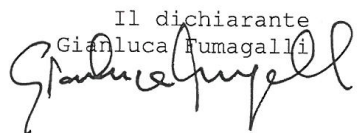 Il dichiarante
Gianluca Fumagalli
Gianluca Fumagalli